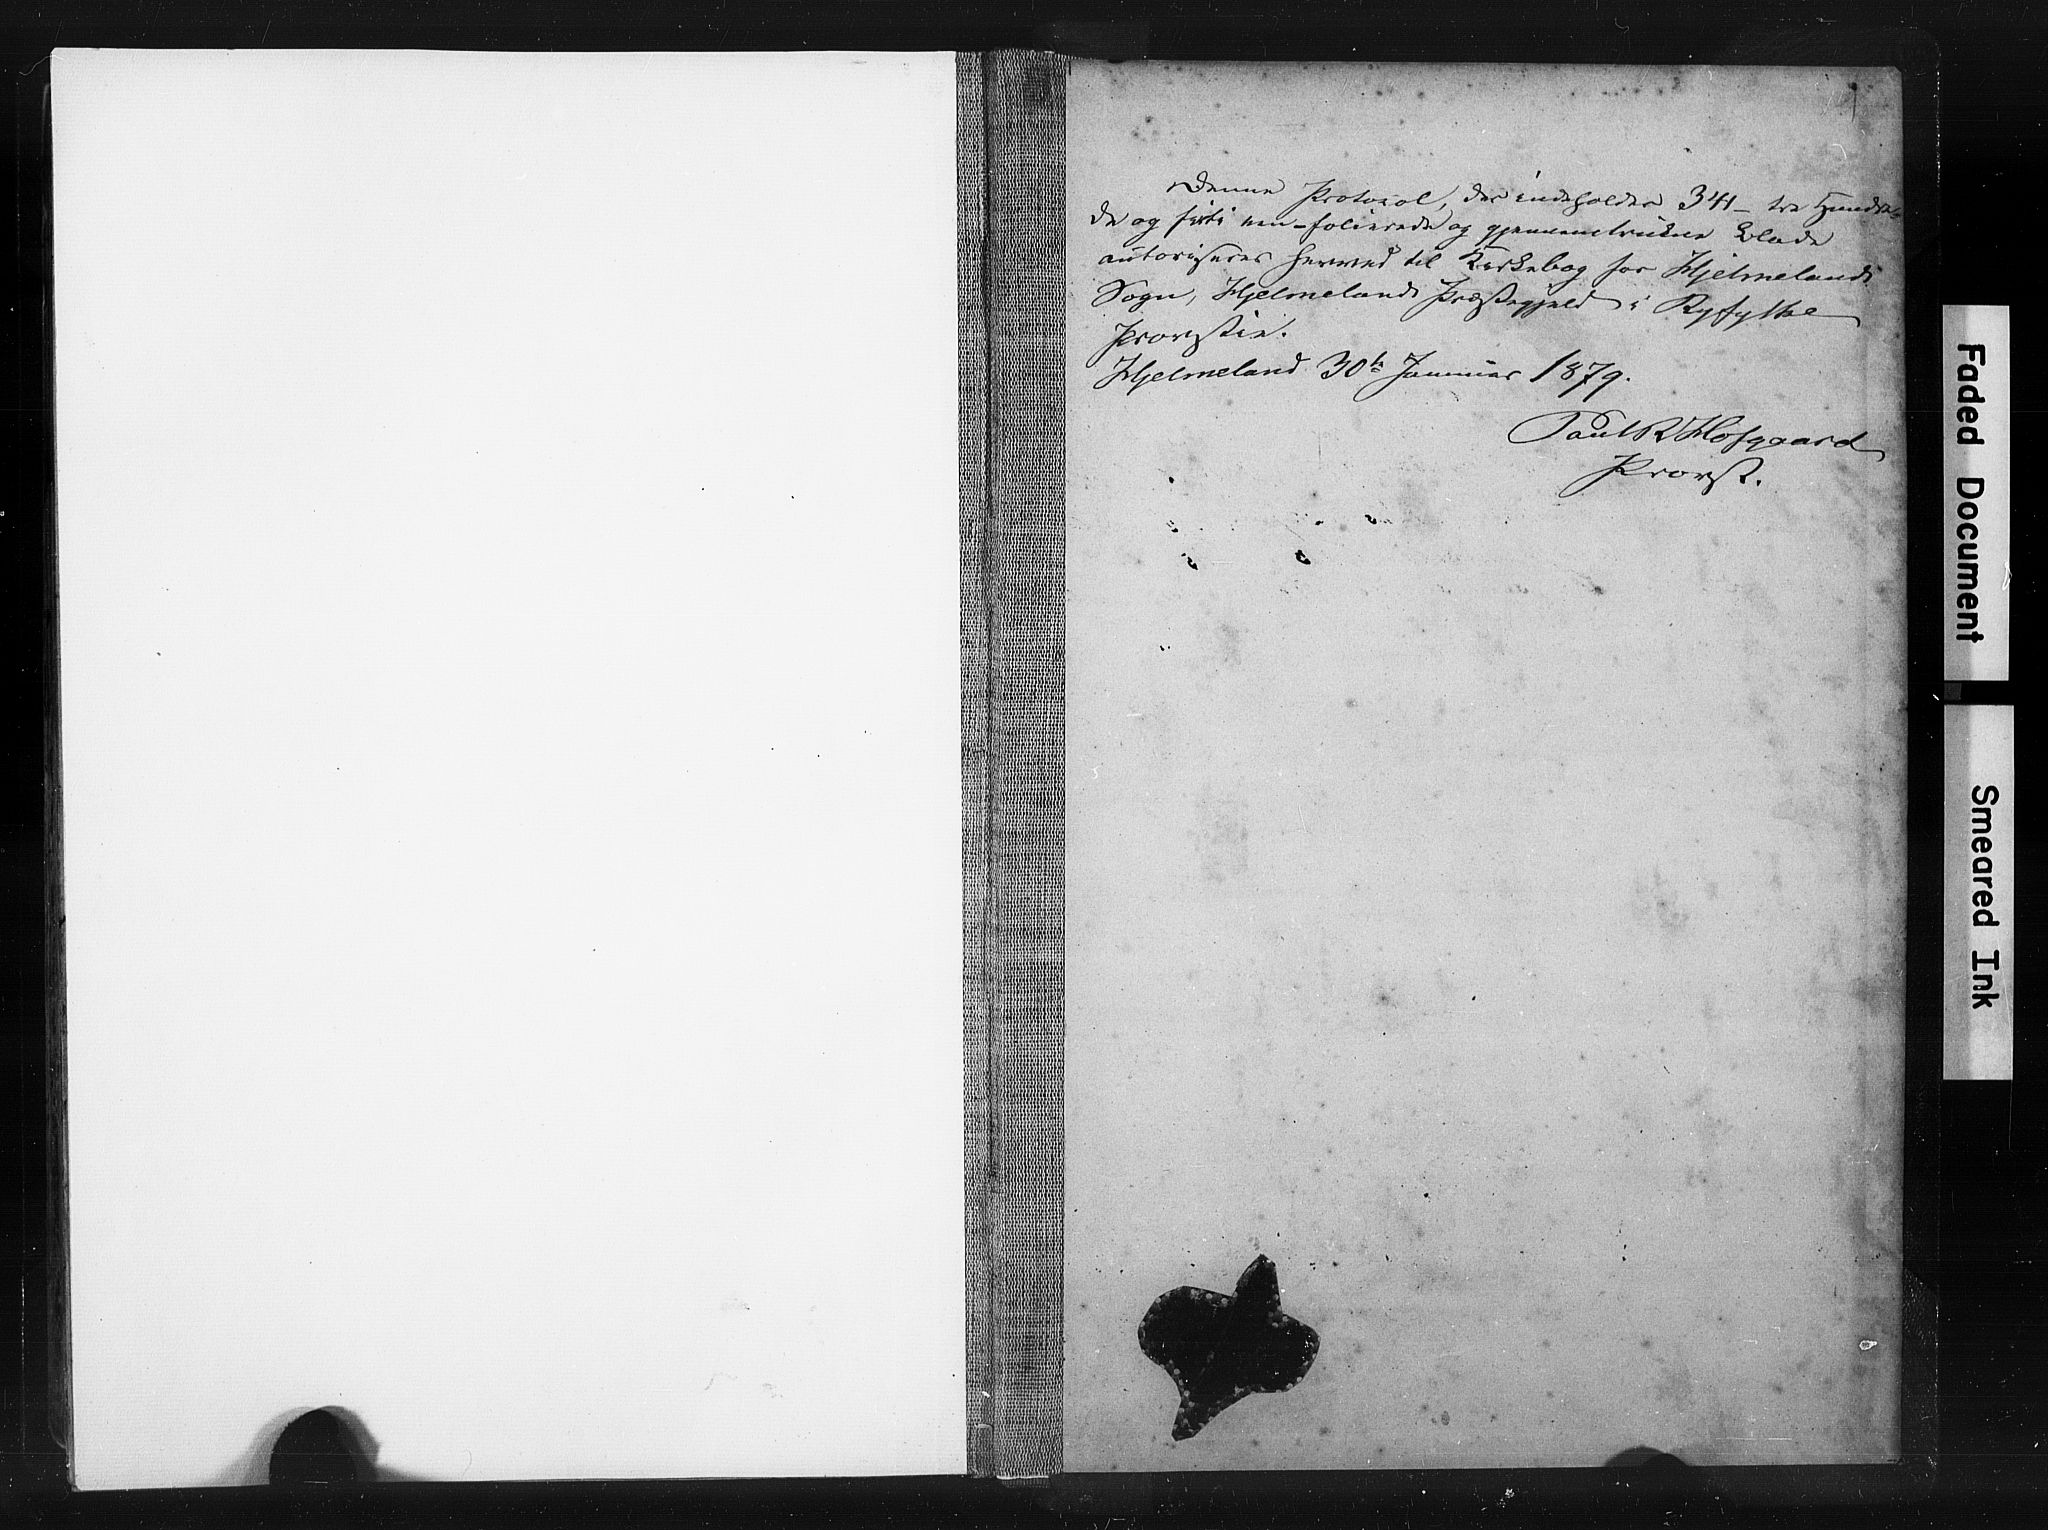 Denne Protocol, der indeholder 341 – tre Hundre-
de og firti een – folierede og gjennemtrukne Blade
autoriseres herved til Kirkebog for Hjelmelands
Sogn, Hjelmelands Præstegjeld i Ryfylke
Provsti.
Hjelmeland 30te Januar 1879.
Paul R Hofgaard
Provst.
Faded Document
Smeared Ink